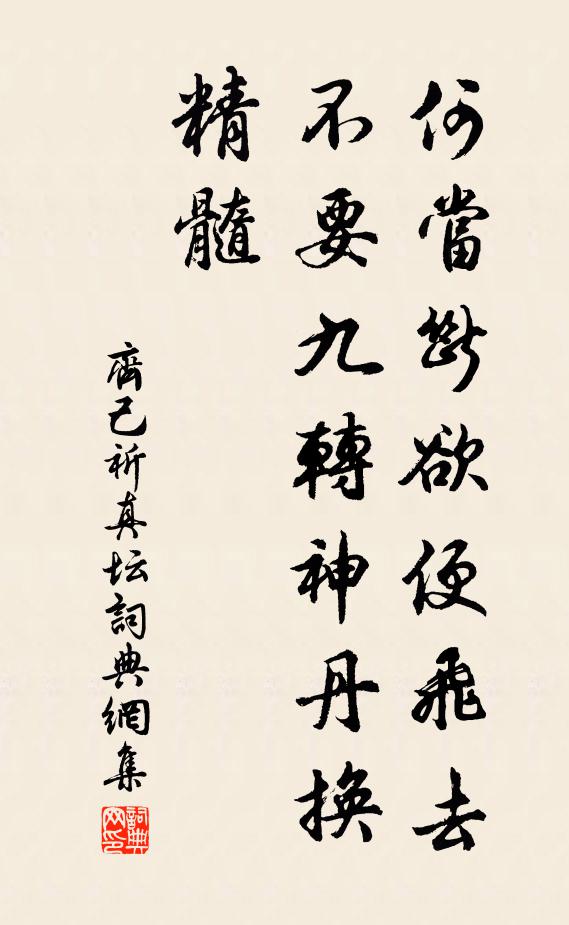 何當斷欲便飛去
不要九轉神丹換
精髓
齊己祈真坛詞典網集
詞典
网印